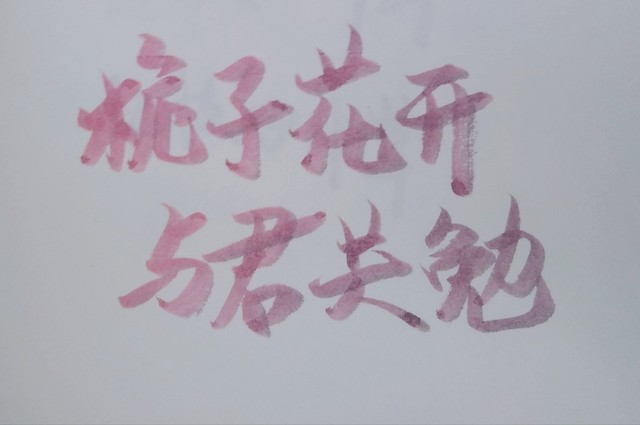 栀子花开
与君共勉